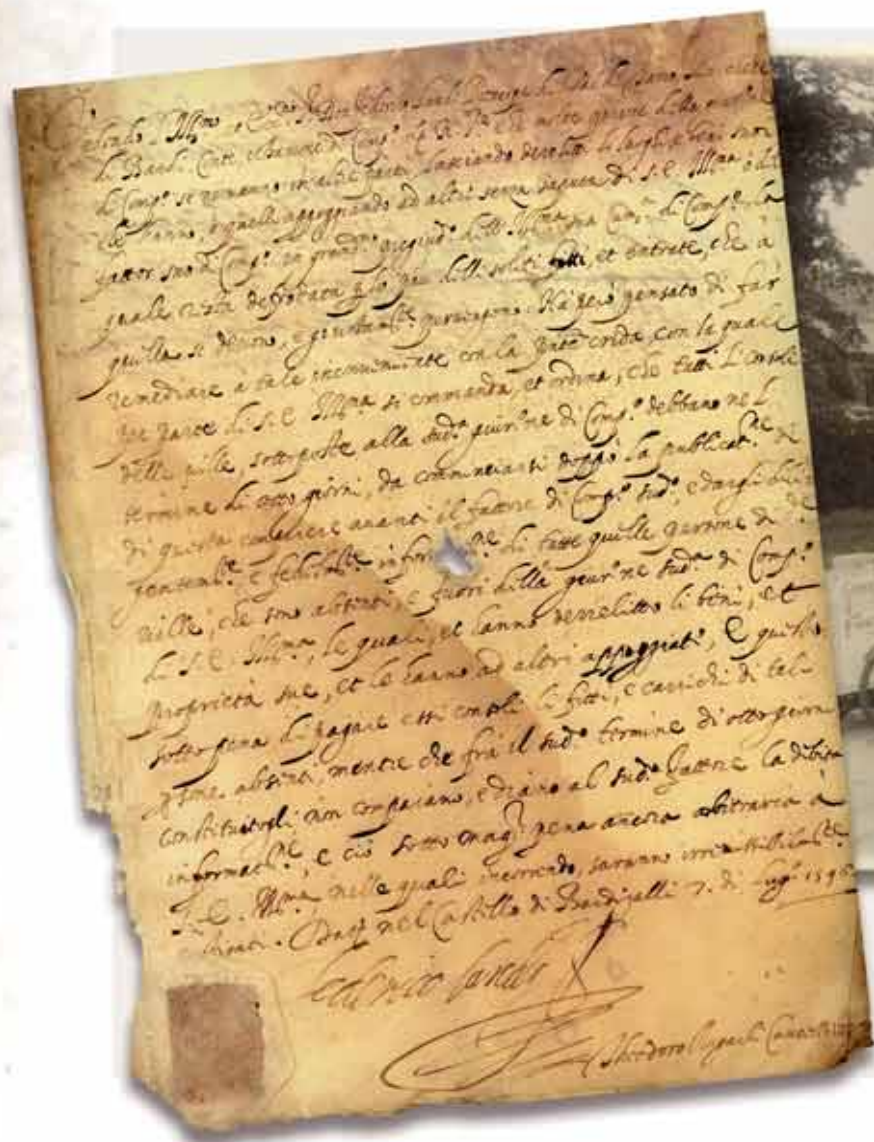 di Bardi, Conte et Barone di Comp.º che molte persone della
di Comp.º se ne vanno in altri paesi, lasciando derelitti li luoghi, e beni suoi
che hanno, e quelli appoggiando ad altri senza saputa di S. E. Ill.ma ò del
fattor suo di Comp.º in grand.º pregiud.º dell' Ill.ma sua Cam.ª di Comp.º la
quale resta defrodata delli soliti fitti, et entrate, che à
quella si devono, e giustam.te pervengono. Hà però pensato di far
remediare a tale inconveniente con la pnte crida, con la quale
per parte di S. E. Ill.ma si commanda, et ordina, che tutti li consoli
delle ville, sottoposte alla sud.ª giur.ne di Comp.º debbano nel
termine di otto giorni, da cominciarsi doppò la publicat.ne di
di questa comparere avanti il fattore di Comp.º sud.º e dargli dili-
gentem.te e fedelm.te inform.ne di tutte quelle persone di d.e
ville, che sono absenti, e fuori della giur.ne sud.ª di Comp.º
di S. E. Ill.ma, le quali, et hanno derrelitto li beni, et
proprietà sue, et le hanno ad altri appoggiate, e questo
sotto pena di pagare essi consoli li fitti, e carrichi di tali
psone absenti, mentre che frà il sud.º termine di otto giorni
constituitogli non compaiano, e diano al sud.º fattore la debita
informat.ne, e ciò sotto mag.r pena ancora arbitraria à
S. E. Ill.ma nelle quali incorrendo, saranno irremissibilm.te
Dat. nel Castello di Bardi, alli 7. di Lug.º 1596
Federico Landi
Theodoro Cancell